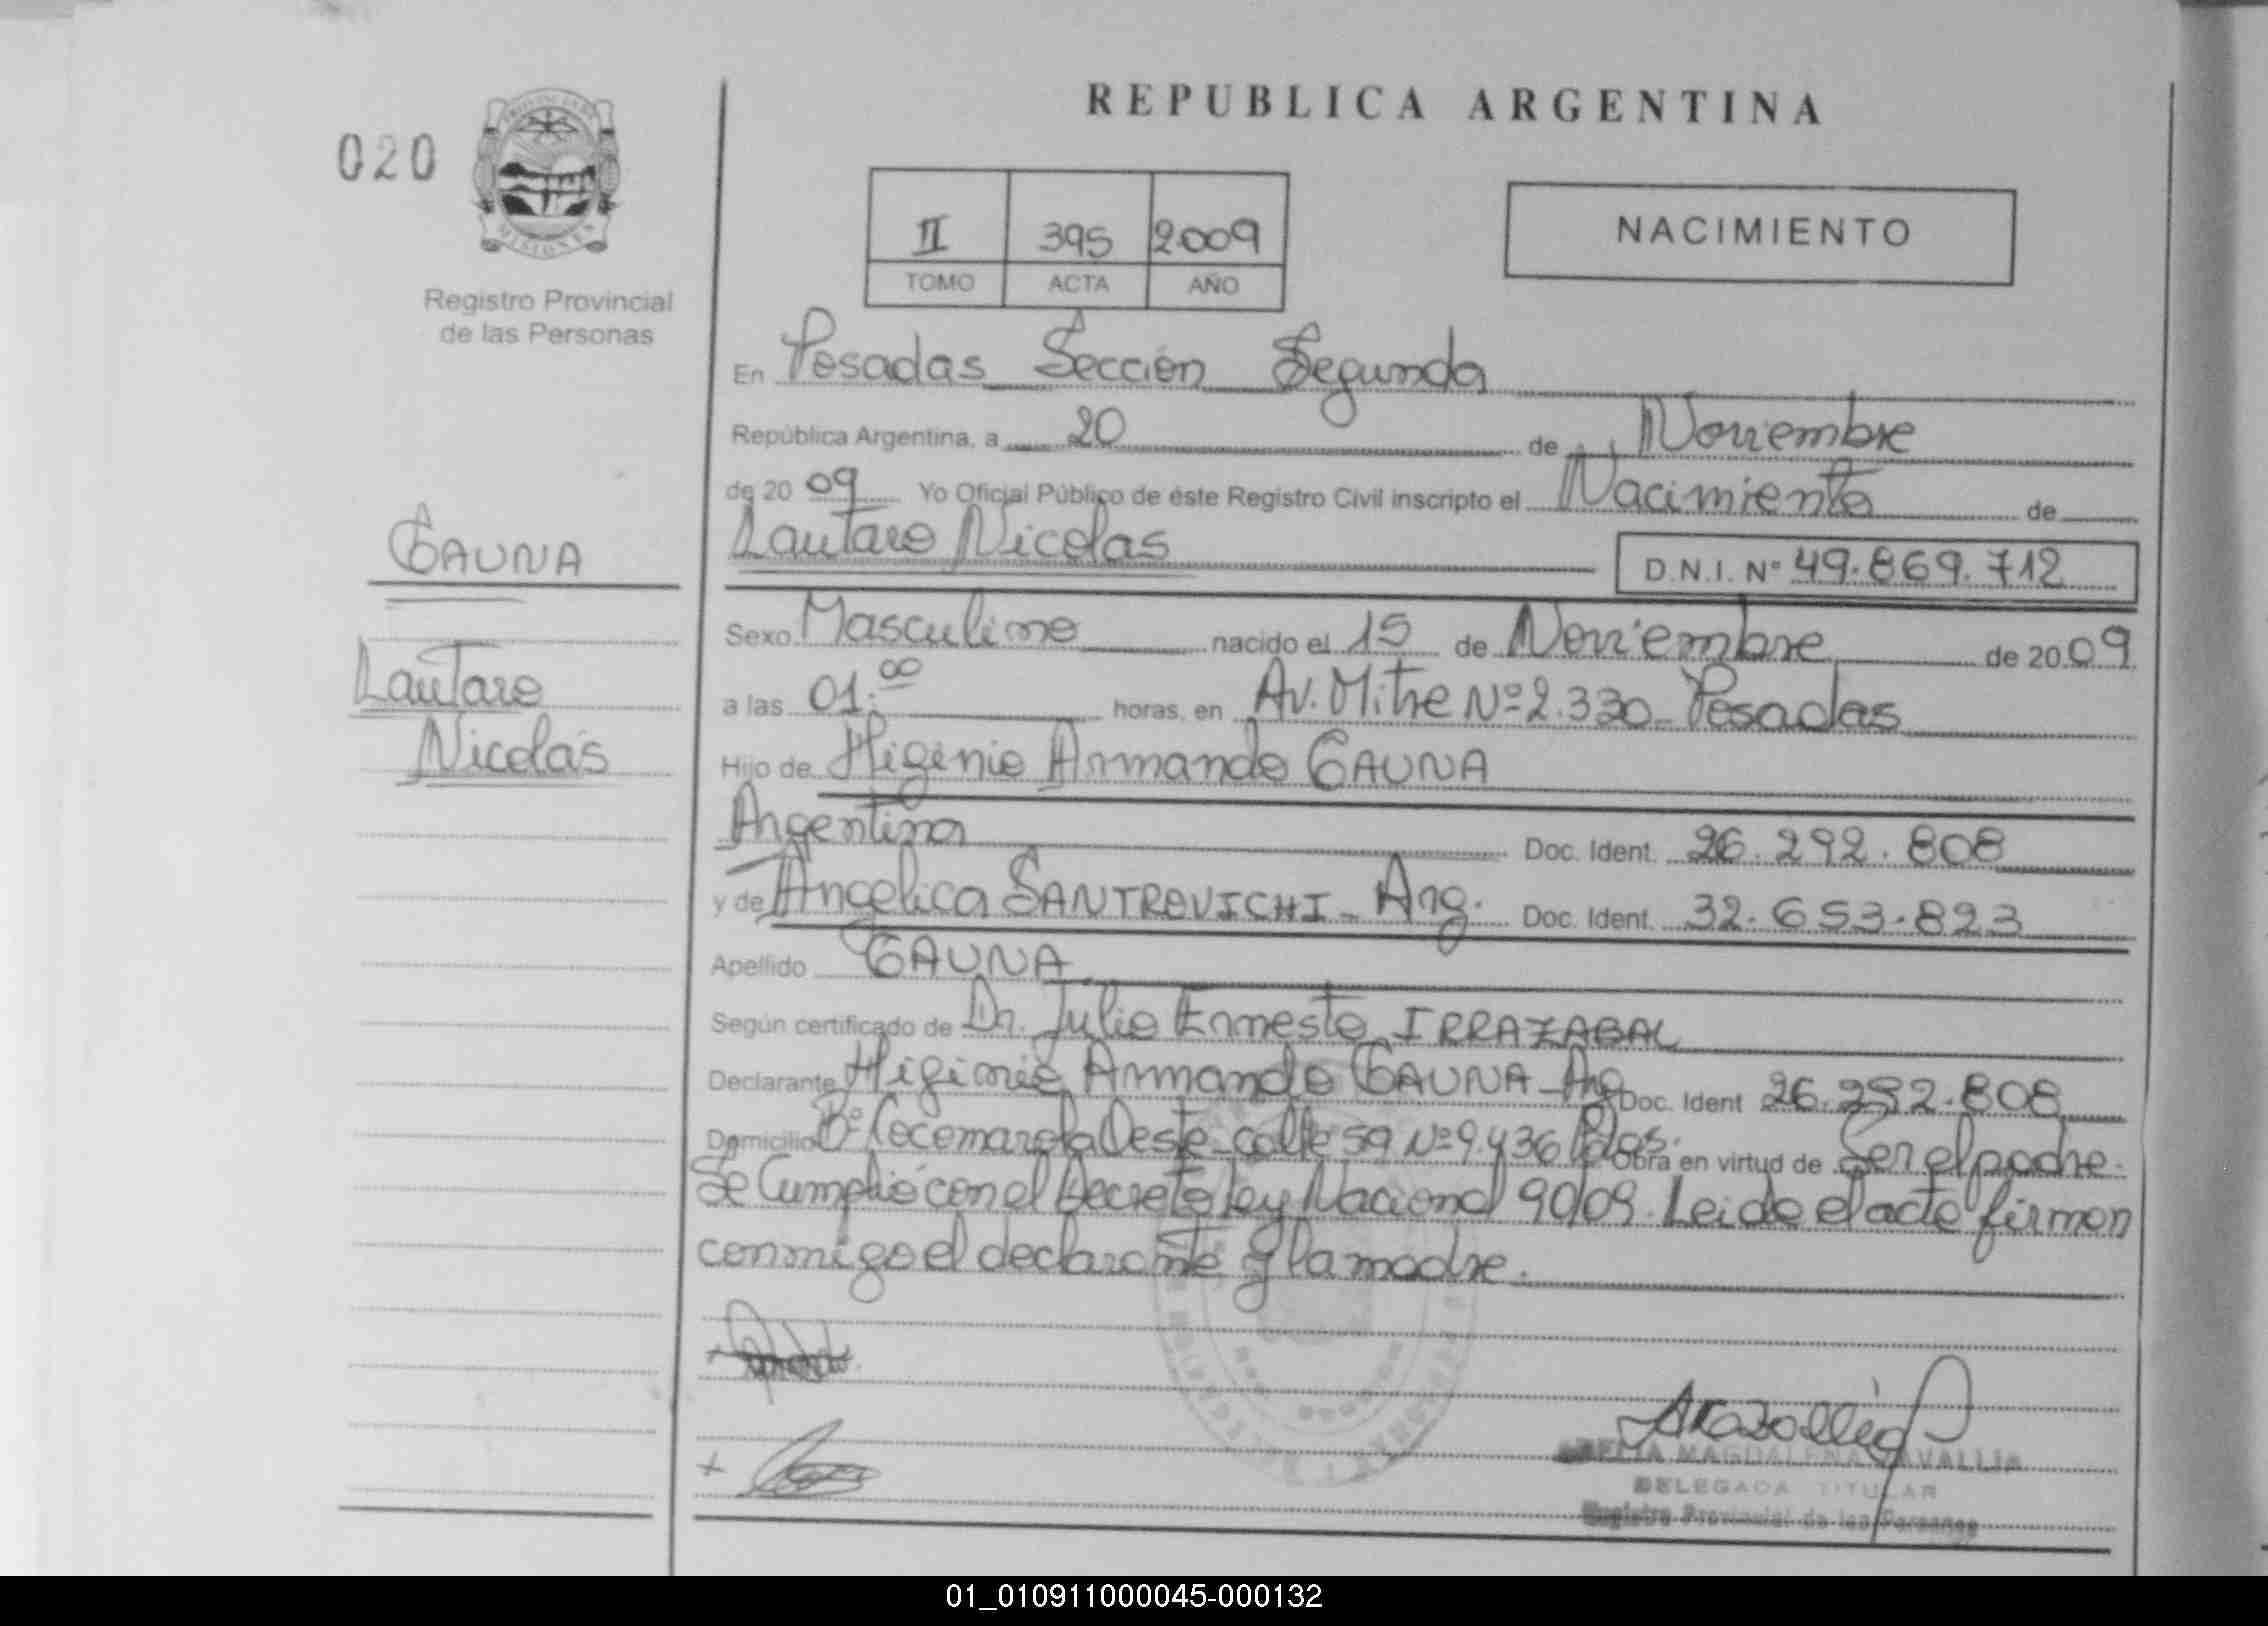 REPUBLICA ARGENTINA
020
PROVINCIA DE
MISIONES
Registro Provincial
de las Personas
II 395 2009
TOMO ACTA AÑO
NACIMIENTO
En Posadas Sección Segunda
República Argentina, a 20 de Noviembre
de 20 09 Yo Oficial Público de éste Registro Civil inscripto el Nacimiento de
Lautaro Nicolas
D.N.I. Nº 49.869.712
GAUNA
Lautaro
Nicolás
Sexo Masculino nacido el 15 de Noviembre de 20 09
a las 01:00 horas, en Av. Mitre Nº 2.330 Posadas
Hijo de Higinio Armando GAUNA
Argentina Doc. Ident. 26.292.808
y de Angelica SANTROVICHI - Arg. Doc. Ident. 32.653.823
Apellido GAUNA
Según certificado de Dr. Julio Ernesto IRRAZABAL
Declarante Higinio Armando GAUNA - Arg Doc. Ident 26.292.808
Domicilio Bº Cocomarola Oeste - calle 59 Nº 9.436 Pdas. Obra en virtud de Ser el padre.
Se Cumplió con el Decreto Ley Nacional 90/09. Leido el acto firman
conmigo el declarante y la madre.
MAGDALENA
DELEGADA TITULAR
Registro Provincial de las Personas
01_010911000045-000132